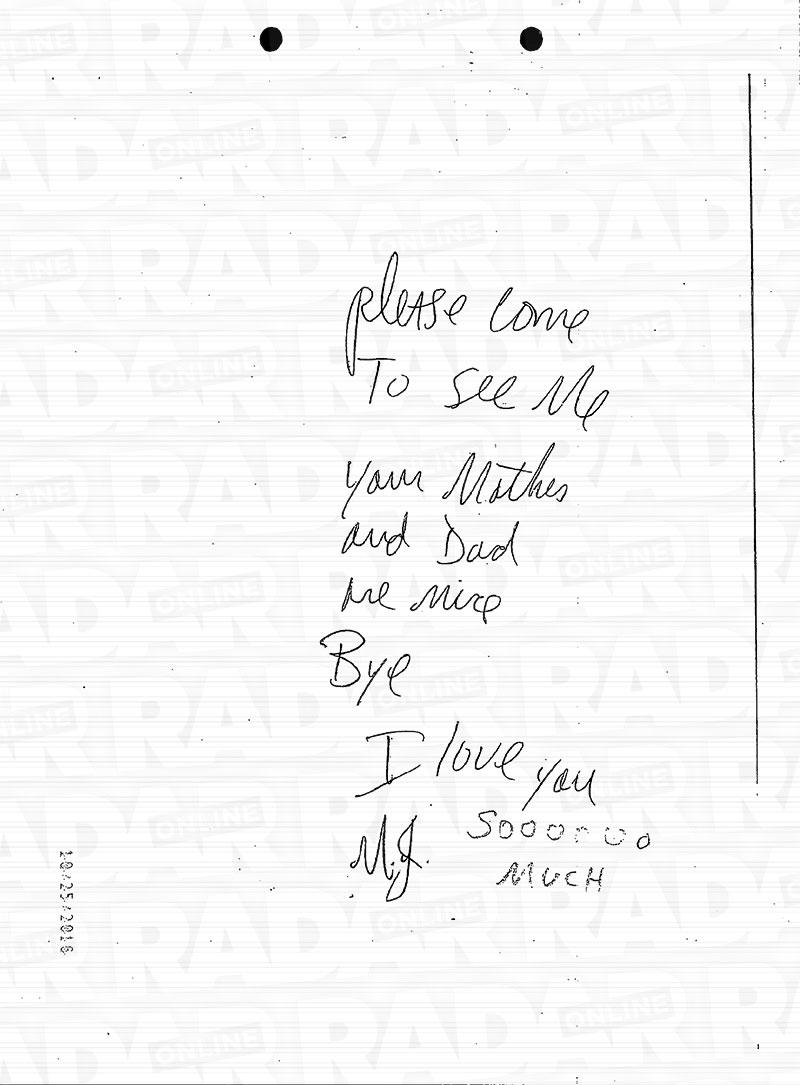 please come
To see Me
your Mother
and Dad
are nice
Bye
I love you
Soooooo
M.J.
MUCH
10/25/2016
RADAR ONLINE